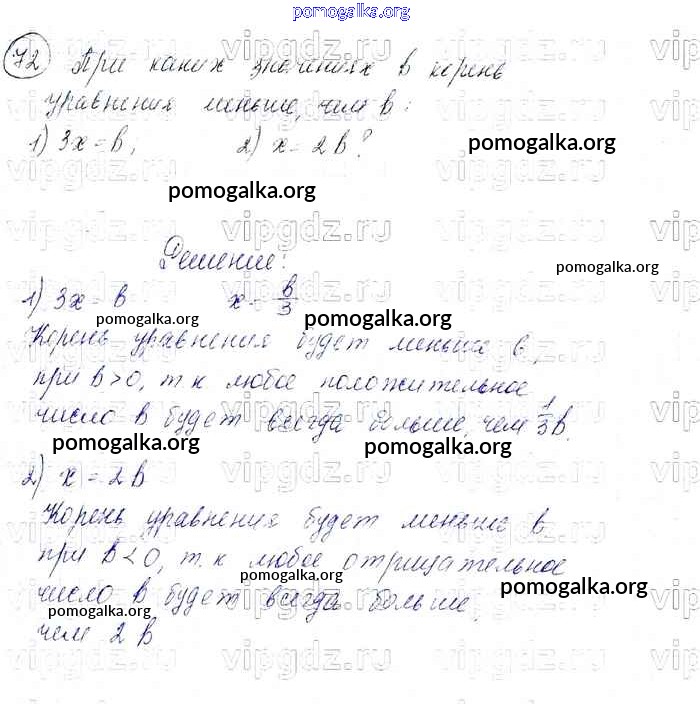 pomogalka.org
72 При каких значениях в корень
уравнения меньше, чем в:
1) 3x = в, 2) x = 2в?
pomogalka.org
pomogalka.org
Решение:
pomogalka.org
1) 3x = в x = в/3
pomogalka.org pomogalka.org
Корень уравнения будет меньше в,
при в > 0, т.к любое положительное
число в будет всегда больше, чем 1/3 в.
pomogalka.org pomogalka.org
2) x = 2в
Корень уравнения будет меньше в
при в < 0, т.к любое отрицательное
pomogalka.org pomogalka.org
число в будет всегда больше,
pomogalka.org
чем 2в
vipgdz.ru